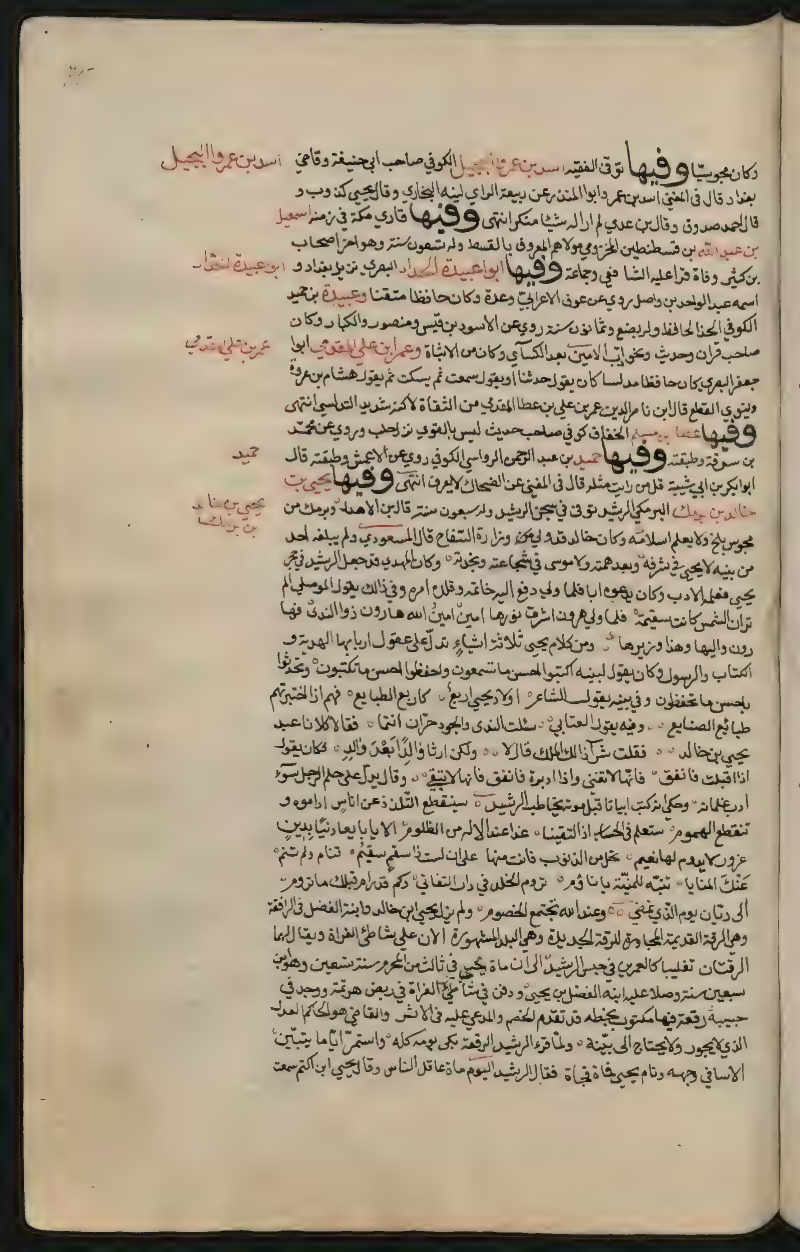 وكان مجوسيا وفيها توفى الفقيه اسد بن عمرو البجيل الكوفي صاحب ابى حنيفة وقاضي اسد بن عمروا البجيل
بغداد قال فى المغني اسد بن عمر وابوا المنذر عن ربيعة الراي لينه البخاري وقال يحيى كذوب و
قال احمد صدوق وقال بن عدي لم ار له شيئا منكر انتهى وفيها قاري مكة فى زمنه اسمعيل
بن عبد الله بن قسطنطين المخزومي مولاهم المعروف بالقسط وله تسعون سنة وهو اخر اصحاب
بن كثير وفاة قرا عليه الشافعي وجماعة وفيها ابوا عبيدة الحداد البصري نزيل بغداد و ابو عبيدة الحداد
اسمه عبد الواحد بن واصل روي عن عوف الاعرابي وعدة وكان حافظا متقنا وعبيدة بن حميد
الكوفي الحذا الحافظ وله بضع وثمانون سنة روي عن الاسود بن قيس ومنصور والكبار وكان
صاحب قران وحديث ونحو ادب الامين بعد الكسآي وكان من الاثباة وعمر ابن علي المقدمي ابوا عمر بن علي مقدمي
جعفر البصري كان حافظا مدلسا كان يقول حدثنا او يقول سمعت ثم يسكت ثم يقول هشام بن عروة
وينوي القطع قال ابن ناصر الدين عمر بن علي بن عطا المقدمي من الثقاة لاكنه شديد التدليس انتهى
وفيها عطا بن مسلم الخفاف كوفي صاحب حديث ليس بالقوي نزل حلب وروي عن محمد
بن سوقة وطبقته وفيها حميد بن عبد الرحمن الرواسي الكوفي روي عن الاعمش وطبقته قال حميد
ابوا بكر بن ابي شيبة قل من رايت مثله قال فى المغني عن الضحاك لا يعرف انتهى وفيها يحيى بن
خالد بن برمك البرمكي الرشيد توفى فى سجن الرشيد وله سبعون سنة قال بن الاهدل وبرمك من يحيى بن خالد بن برمك
مجوس بلخ ولا يعلم اسلامه وكان خالد قد ولي وزارة السفاح قال المسعودي ولم يبلغه احد
من بنيه لا يحيى فى شرفه وبعد همته ولا موسى فى شجاعته ونجدته وكان المهدي قد جعل الرشيد فى حجر
يحيى فعلمه الادب وكان يدعوه ابا فلما ولي دفع اليه خاتمه وقلده امره وفى ذالك يقول الموصلي الم
تران الشمس كانت سقيمة فلما ولي هرون اشرق نورها امين امين الله هارون ذوا الندى فها
رون واليها وهذا وزيرها ومن كلام يحيى ثلاثة اشياء تدل على عقول اربابها الهدية و
الكتاب والرسول وكان يقول لبنيه اكتبوا احسن ما تسمعون واحفظوا احسن ما تكتبون وتحدثوا
باحسن ما تحفظون وفى بنيه يقول الشاعر اولاد يحيى اربع كاربع الطبايع فهم اذا اختبرتهم
طبائع الصنايع وفيه يقول العتابي سئلت الندى والجود حران انتما فقالا كلانا عبد
يحيى بن خالد فقلت شرآ ذالك الملك قالا ولكن ارثا والدا بعد والد فكان يقول
اذا اقبلت فانفق فانها لا تفنى واذا ادبرة فانفق فانها لا تبقى وقال يدل على حلم الرجل سوء
ادب غلمانه وحكي انه كتب ابياتا قبل موته يخاطب الرشيد سينقطع التلذذ عن اناس اداموه و
تنقطع الهموم ستعلم فى الحساب اذا التقينا غدا عند الاله من الظلوم الا يا بايعا دنيا بدين
غرور لا يدوم لها نعيم تخل من الذنوب فانت منها على ان لست ذا سقم سقيم تنام ولم تنم
عنك المنايا تنبه للمنية يا نئوم تروم الخلد فى دار التفاني وكم قد رام قبلك ما تروم
الى ديان يوم الدي نمضي وعند الله تجتمع الخصوم ولم يزل يحيى ابن خالد وابنه الفضل فى الرافقة
وهي الرقة القديمة المجاورة للرقة الجديدة وهي البلد المشهورة الان على شاطئ الفراة ويقال لهما
الرقتان تغليبا كالعمرين فى حبس الرشيد الى ان ماة يحيى فى ثالث من المحرم سنة تسعين وهو ابن
سبعين سنة وصلا عليه ابنه الفضل بن يحيى ودفن فى شاطئ الفراة فى ربض هرثمة ووجد فى
جيبه رقعة فيها مكتوب بخطه قد تقدم الخصم والمدعي عليه فى الاثر والقاضي هو الحاكم العدل
الذي لا يجور ولا يحتاج الى بينة ولما قرء الرشيد الرقعة بكى يومه كله واستمر اياما يتبين
الاسا فى وجهه ونام يحيى فجاة فقال الرشيد اليوم ماة عاقل الناس وقال يحيى ابن اكثم سمعت